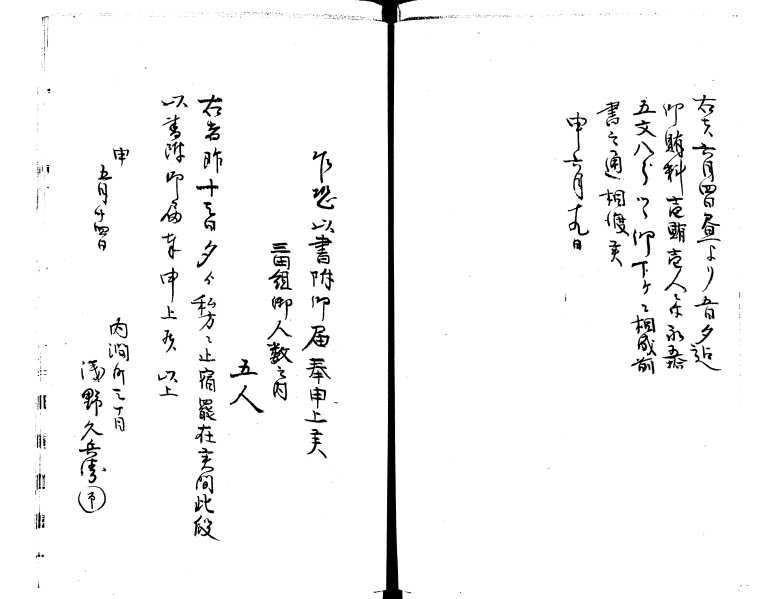 右者六月四日昼より五日夕迄
仰賄料壱賄壱人ニ付永五拾
五文八分ツヽ仰下ケニ相成前
書之通相渡候
申六月十九日
乍恐以書附御届奉申上候
三田組御人数之内
五人
右者昨十三日夕ゟ私方ニ止宿罷在候間此段
以書附御届奉申上候 以上
申 五月十四日
内澗町三丁目
浅野久兵衛 印